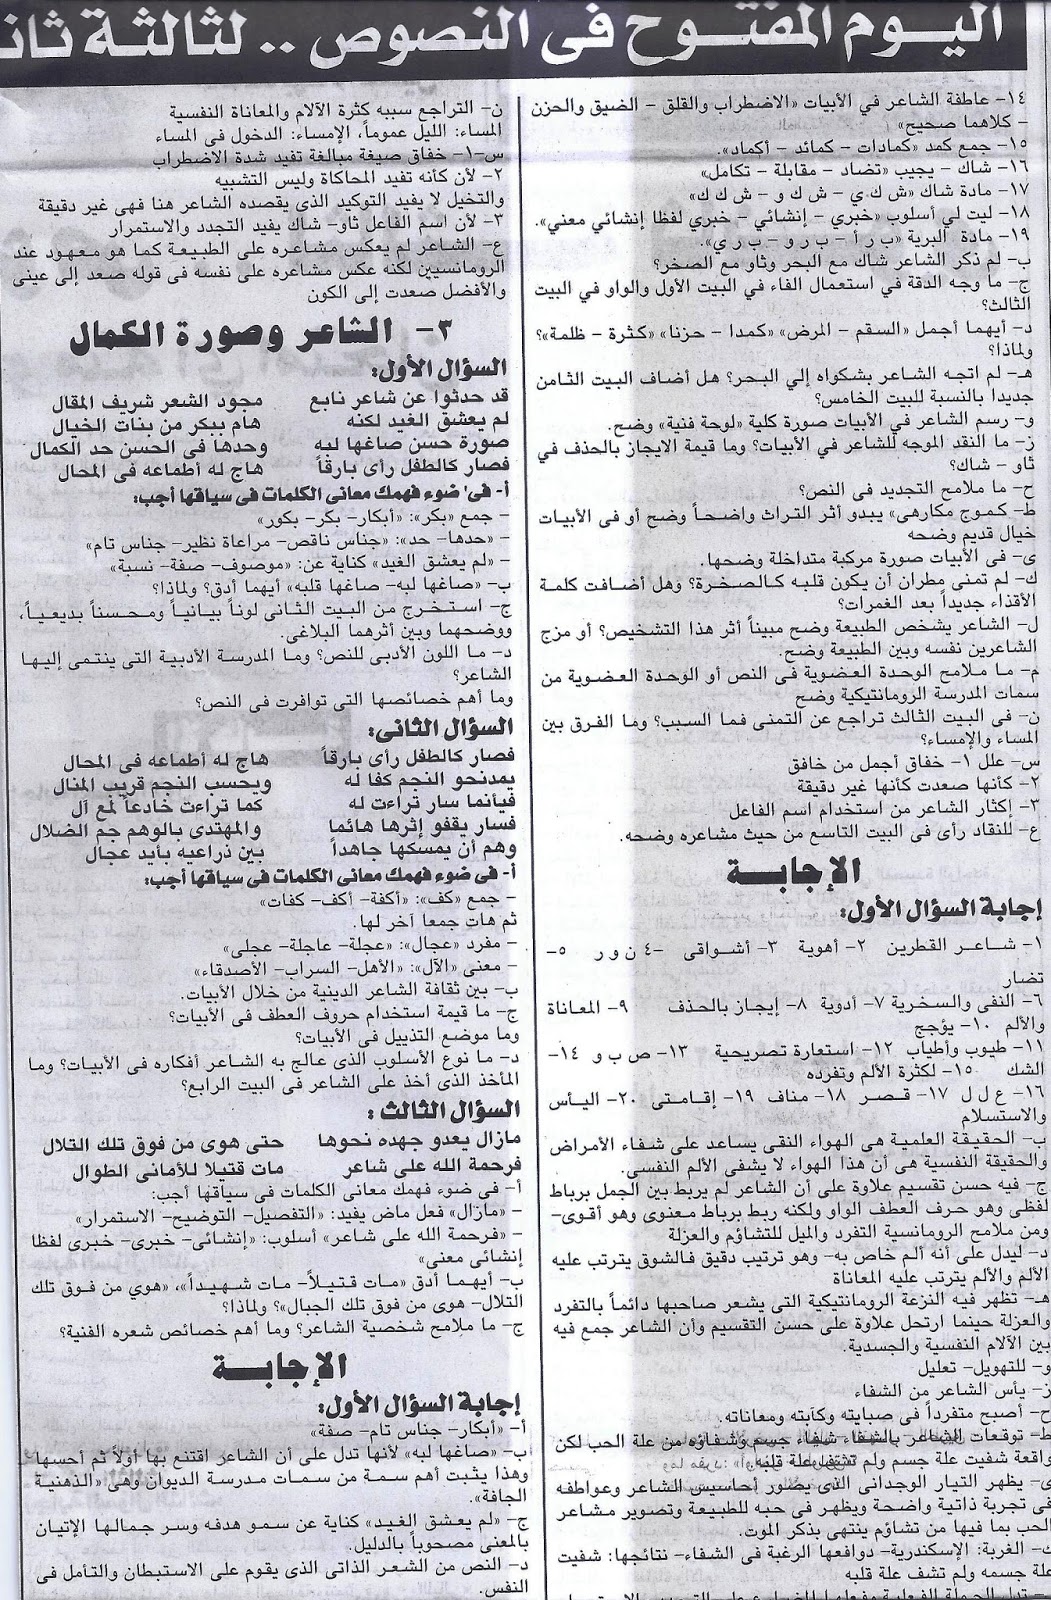 اليـوم المفتـوح فى النصوص .. لثالثة ثان
١٤- عاطفة الشاعر في الأبيات «الاضطراب والقلق - الضيق والحزن
- كلاهما صحيح»
١٥- جمع كمد «كمادات - كمائد - أكماد».
١٦- شاك - يجيب «تضاد - مقابلة - تكامل»
١٧- مادة شاك «ش ك ي - ش ك و - ش ك ك»
١٨- ليت لي أسلوب «خبري - إنشائي - خبري لفظا إنشائي معني».
١٩- مادة البرية «ب ر أ - ب ر و - ب ر ي».
ب- لم ذكر الشاعر شاك مع البحر وثاو مع الصخر؟
ج- ما وجه الدقة في استعمال الفاء في البيت الأول والواو في البيت
الثالث؟
د- أيهما أجمل «السقم - المرض» «كمدا - حزنا» «كثرة - ظلمة»؟
ولماذا؟
هـ- لم اتجه الشاعر بشكواه إلي البحر؟ هل أضاف البيت الثامن
جديدا بالنسبة للبيت الخامس؟
و- رسم الشاعر في الأبيات صورة كلية «لوحة فنية» وضح.
ز- ما النقد الموجه للشاعر في الأبيات؟ وما قيمة الايجاز بالحذف في
ثاو - شاك؟
ح- ما ملامح التجديد فى النص؟
ط- كموج مكارهى» يبدو أثر التراث واضحاً وضح أو فى الأبيات
خيال قديم وضحه
ى- فى الأبيات صورة مركبة متداخلة وضحها.
ك- لم تمنى مطران أن يكون قلبه كالصخرة؟ وهل أضافت كلمة
الأقذاء جديداً بعد الغمرات؟
ل- الشاعر يشخص الطبيعة وضح مبيناً أثر هذا التشخيص؟ أو مزج
الشاعرين نفسه وبين الطبيعة وضح.
م- ما ملامح الوحدة العضوية فى النص أو الوحدة العضوية من
سمات المدرسة الرومانتيكية وضح
ن- فى البيت الثالث تراجع عن التمنى فما السبب؟ وما الفرق بين
المساء والإمساء؟
س- علل ١- خفاق أجمل من خافق
٢- كأنها صعدت كأنها غير دقيقة
٣- إكثار الشاعر من استخدام اسم الفاعل
ع- للنقاد رأى فى البيت التاسع من حيث مشاعره وضحه.
الإجابـــة
إجابة السؤال الأول:
١- شاعر القطرين ٢- أهوية ٣- أشواقى -٤ ن و ر ٥-
تضار
٦- النفى والسخرية ٧- أدوية ٨- إيجاز بالحذف ٩- المعاناة
والألم ١٠- يؤجج
١١- طيوب وأطياب ١٢- استعارة تصريحية ١٣- ص ب و ١٤-
الشك ١٥- لكثرة الألم وتفرده
١٦- ع ل ل ١٧- قصر ١٨- مناف ١٩- إقامتى ٢٠- اليأس
والاستسلام
ب- الحقيقة العلمية هى الهواء النقى يساعد على شفاء الأمراض
والحقيقة النفسية هى أن هذا الهواء لا يشفى الألم النفسى.
ج- فيه حسن تقسيم علاوة على أن الشاعر لم يربط بين الجمل برباط
لفظى وهو حرف العطف الواو ولكنه ربط برباط معنوى وهو أقوى-
ومن ملامح الرومانسية التفرد والميل للتشاؤم والعزلة
د- ليدل على أنه ألم خاص به- وهو ترتيب دقيق فالشوق يترتب عليه
الألم والألم يترتب عليه المعاناة
هـ- تظهر فيه النزعة الرومانتيكية التى يشعر صاحبها دائماً بالتفرد
والعزلة حينما ارتحل علاوة على حسن التقسيم وأن الشاعر جمع فيه
بين الآلام النفسية والجسدية.
و- للتهويل- تعليل
ز- يأس الشاعر من الشفاء
ح- أصبح متفرداً فى صبابته وكآبته ومعاناته.
ط- توقعات الشاعر بالشفاء شفاء جسم وشفاؤه من علة الحب لكن
واقعة شفيت علة جسم ولم تشف علة قلبه
ى- يظهر التيار الوجدانى الذى يصور أحاسيس الشاعر وعواطفه
فى تجربة ذاتية واضحة ويظهر فى حبه للطبيعة وتصوير مشاعر
الحب بما فيها من تشاؤم ينتهى بذكر الموت.
ك- الغربة: الإسكندرية- دوافعها الرغبة فى الشفاء- نتائجها: شفيت
علة جسمه ولم تشف علة قلبه
ن- التراجع سببه كثرة الآلام والمعاناة النفسية
المساء: الليل عموماً، الإمساء: الدخول فى المساء
س-١- خفاق صيغة مبالغة تفيد شدة الاضطراب
٢- لأن كأنه تفيد المحاكاة وليس التشبيه
والتخيل لا يفيد التوكيد الذى يقصده الشاعر هنا فهى غير دقيقة
٣- لأن اسم الفاعل ثاو- شاك يفيد التجدد والاستمرار
ع- الشاعر لم يعكس مشاعره على الطبيعة كما هو معهود عند
الرومانسيين لكنه عكس مشاعره على نفسه فى قوله صعد إلى عينى
والأفضل صعدت إلى الكون
٣- الشاعر وصورة الكمال
السؤال الأول:
قد حدثوا عن شاعر نابع مجود الشعر شريف المقال
لم يعشق الغيد لكنه هام ببكر من بنات الخيال
صورة حسن صاغها لبه وحدها فى الحسن حد الكمال
فصار كالطفل رأى بارقاً هاج له أطماعه فى المحال
أ- فى ضوء فهمك معانى الكلمات فى سياقها أجب:
- جمع «بكر»: «أبكار- بكر- بكور»
- «حدها- حد»: «جناس ناقص- مراعاة نظير- جناس تام»
- «لم يعشق الغيد» كناية عن: «موصوف- صفة- نسبة»
ب- «صاغها لبه- صاغها قلبه» أيهما أدق؟ ولماذا؟
ج- استخرج من البيت الثانى لوناً بيانياً ومحسناً بديعياً،
ووضحهما وبين أثرهما البلاغى.
د- ما اللون الأدبى للنص؟ وما المدرسة الأدبية التى ينتمى إليها
الشاعر؟
وما أهم خصائصها التى توافرت فى النص؟
السؤال الثانى:
فصار كالطفل رأى بارقاً هاج له أطماعه فى المحال
يمدنحو النجم كفا له ويحسب النجم قريب المنال
فيأنما سار تراءت له كما تراءت خادعاً لمع آل
فسار يقفو إثرها هائما والمهتدى بالوهم جم الضلال
وهم أن يمسكها جاهداً بين ذراعيه بأيد عجال
أ- فى ضوء فهمك معانى الكلمات فى سياقها أجب:
- جمع «كف»: «أكفة- أكف- كفات»
ثم هات جمعا آخر لها.
- مفرد «عجال»: «عجلة- عاجلة- عجلى»
- معنى «الآل»: «الأهل- السراب- الأصدقاء»
ب- بين ثقافة الشاعر الدينية من خلال الأبيات.
ج- ما قيمة استخدام حروف العطف فى الأبيات؟
وما موضع التذييل فى الأبيات؟
د- ما نوع الأسلوب الذى عالج به الشاعر أفكاره فى الأبيات؟ وما
المأخذ الذى أخذ على الشاعر فى البيت الرابع؟
السؤال الثالث :
مازال يعدو جهده نحوها حتى هوى من فوق تلك التلال
فرحمة الله على شاعر مات قتيلا للأمانى الطوال
أ- فى ضوء فهمك معانى الكلمات فى سياقها أجب:
- «مازال» فعل ماض يفيد: «التفصيل- التوضيح- الاستمرار»
- «فرحمة الله على شاعر» أسلوب: «إنشائى- خبرى- خبرى لفظا
إنشائى معنى»
ب- أيهما أدق «مات قتيلاً- مات شهيداً»، «هوي من فوق تلك
التلال- هوى من فوق تلك الجبال»؟ ولماذا؟
ج- ما ملامح شخصية الشاعر؟ وما أهم خصائص شعره الفنية؟
الإجابـــة
إجابة السؤال الأول:
أ- «أبكار- جناس تام- صفة»
ب- «صاغها لبه» لأنها تدل على أن الشاعر اقتنع بها أولاً ثم أحسها
وهذا يثبت أهم سمة من سمات مدرسة الديوان وهى «الذهنية
الجافة».
ج- «لم يعشق الغيد» كناية عن سمو هدفه وسر جمالها الإتيان
بالمعنى مصحوباً بالدليل.
د- النص من الشعر الذاتى الذى يقوم على الاستبطان والتأمل فى
النفس.